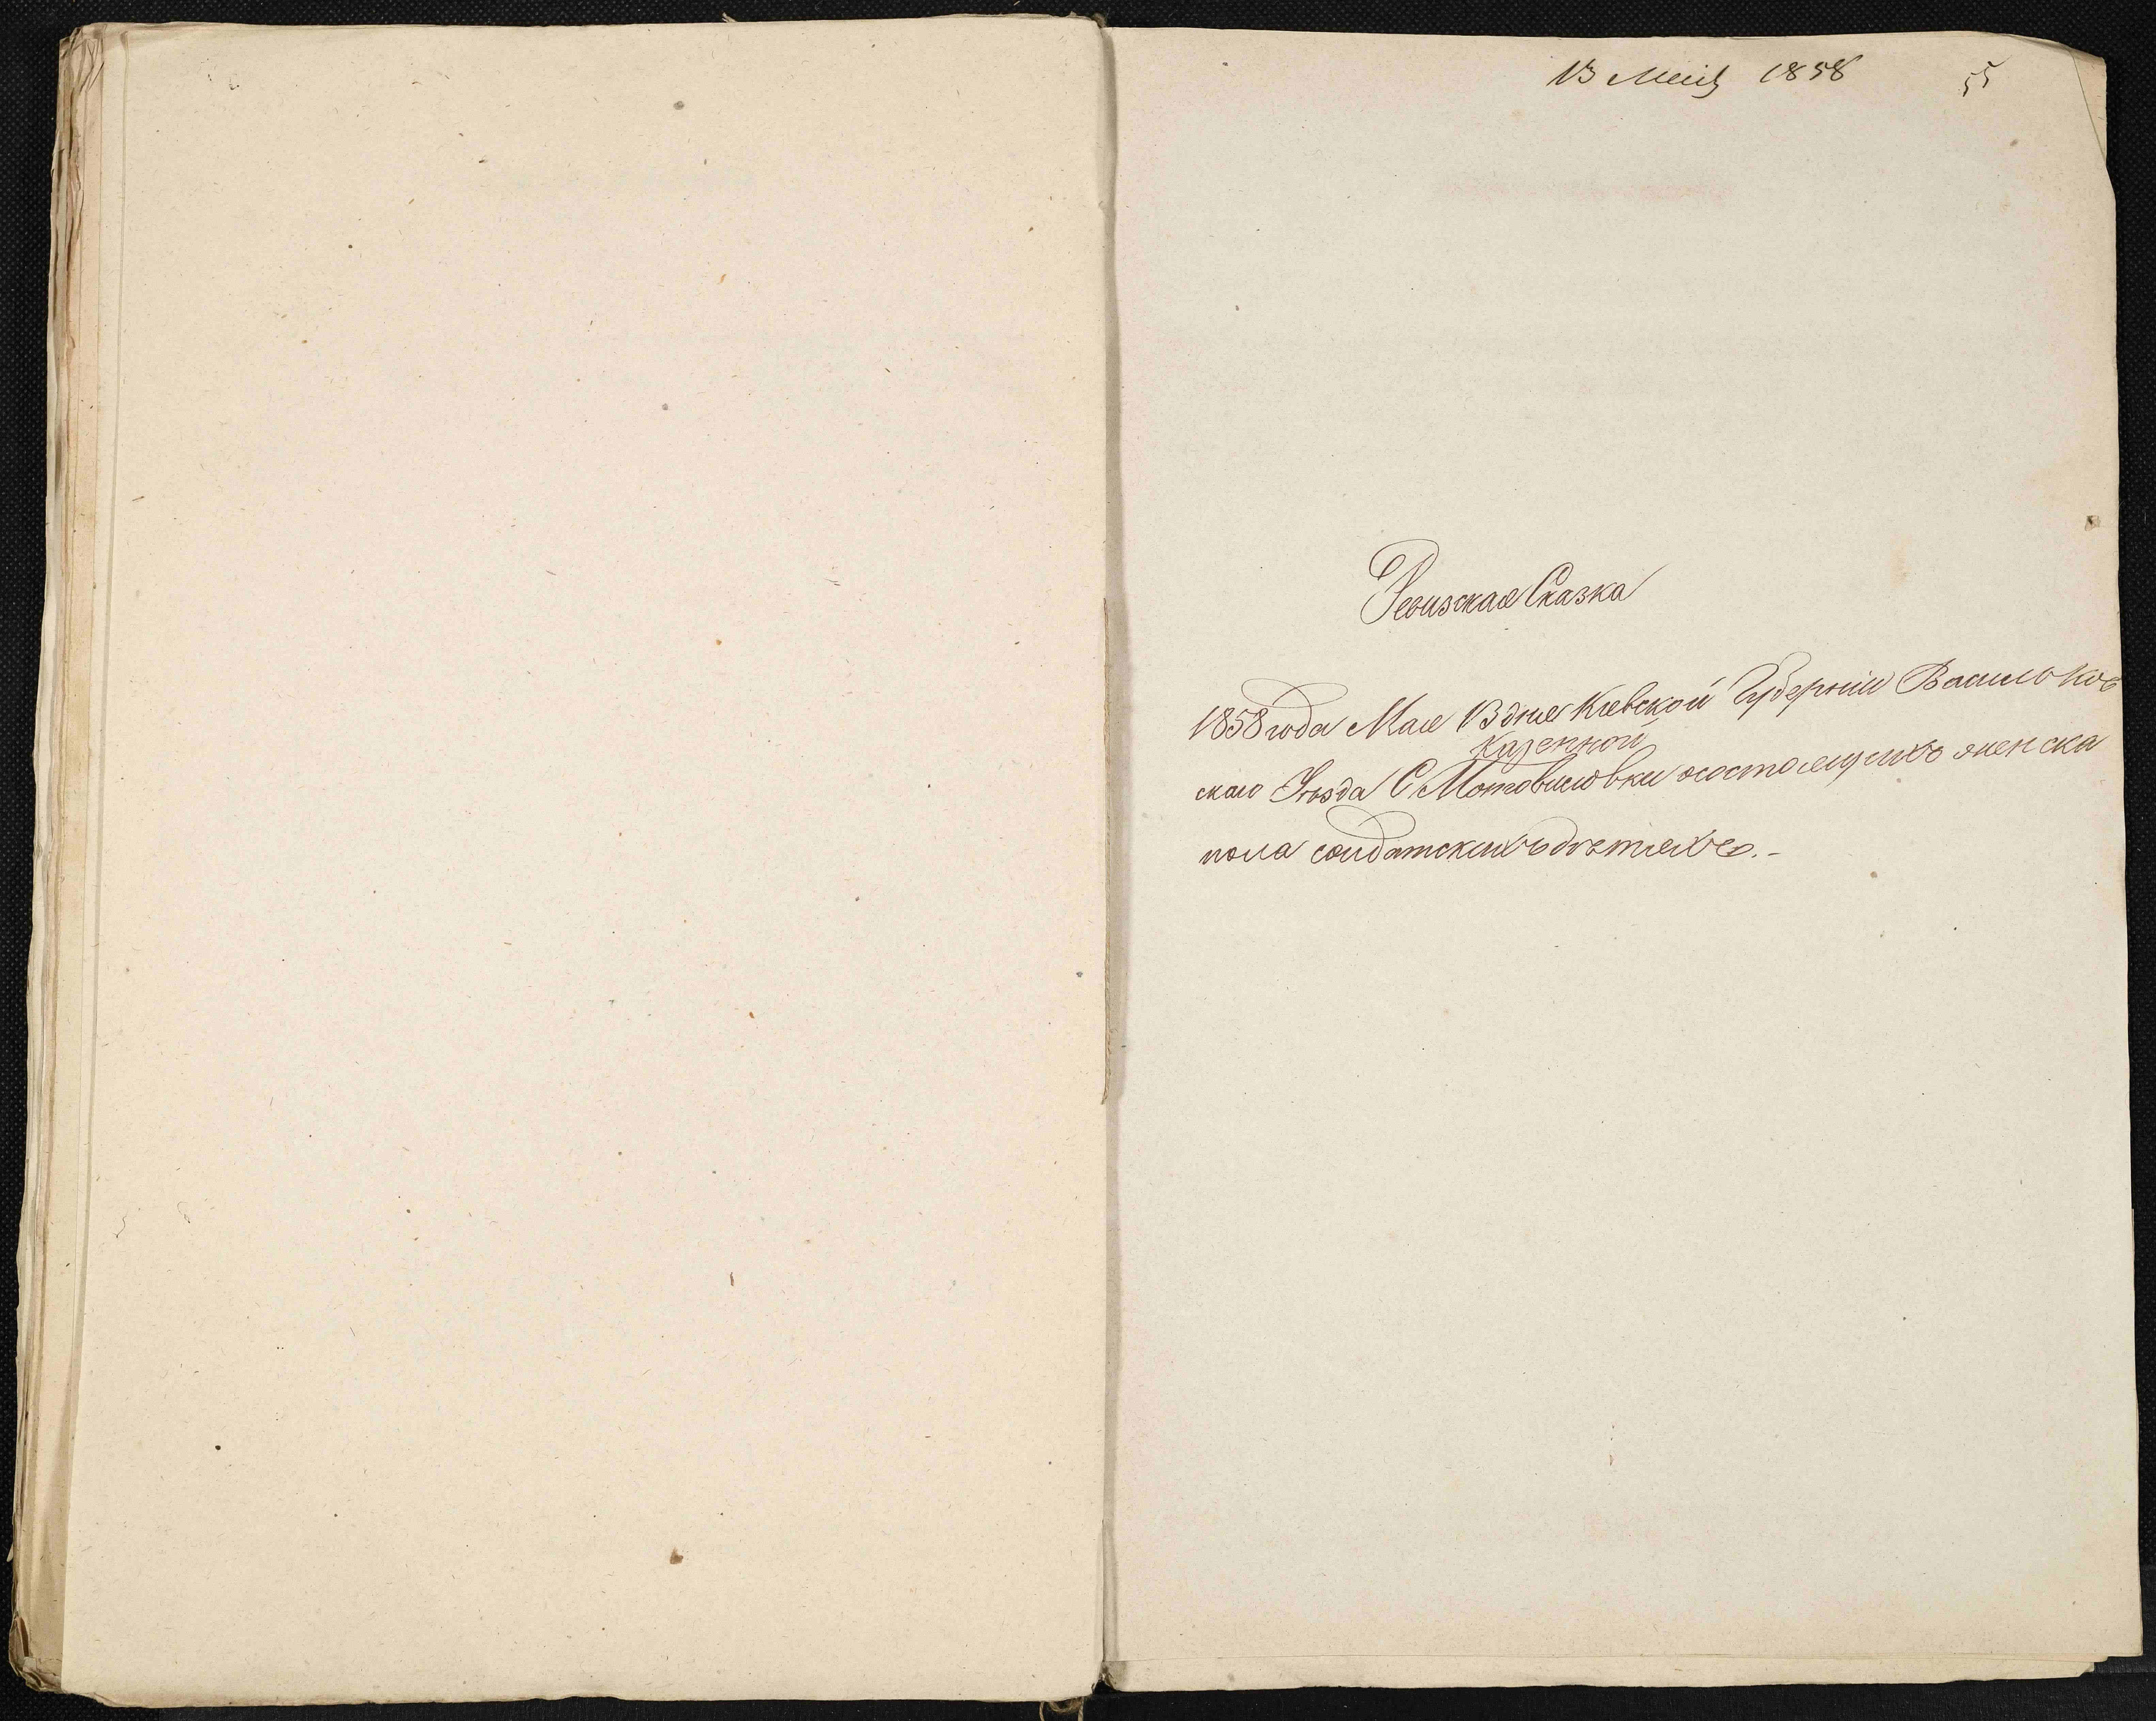 13 Маія 1858 55
Ревизская Сказка
1858 года Мая 13 дня Киевской Губерніи Васильков
Казенной
скаго Уѣзда С Мотовиловки состоящихъ женска
пола солдатскихъ дѣтяхъ.-